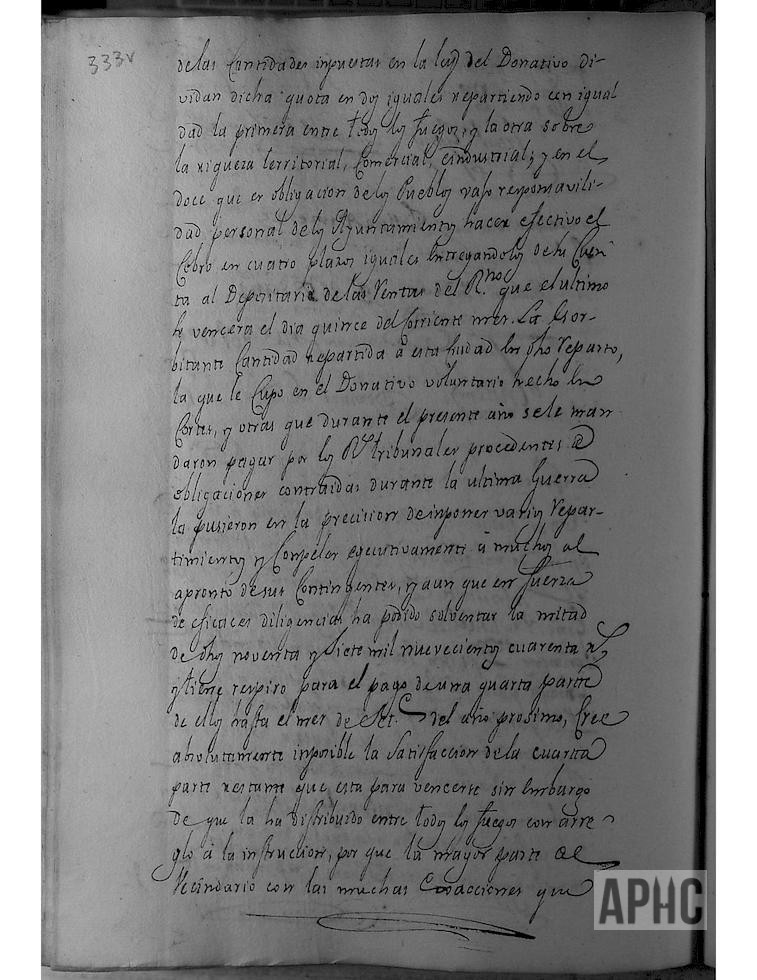 333v
delas Cantidades inpuestas en la ley del Donativo di-
vidan dicha quota en dos iguales repartiendo con igual
dad la primera entre todos los fuegos, y la otra sobre
la riqueza territorial, Comercial, e industrial; y en el
doce que es obligacion delos Pueblos vajo responsavili-
dad personal delos Ayuntamientos hacer efectivo el
Cobro en cuatro plazos iguales entregandolos desu Cuen
ta al Depositario delas Ventas del R.no que el ultimo
se vencera el dia quince del Corriente mes. La Exor-
bitante Cantidad repartida à esta Ciudad en dho Reparto,
la que le Cupo en el Donativo voluntario hecho en
Cortes, y otras que durante el presente año sele man
daron pagar por los Rs tribunales procedentes de
obligaciones contraidas durante la ultima Guerra
la pusieron en la precision deinponer varios Repar-
timientos y Conpeler egecutivamente à muchos al
apronto desus Contingentes, y aun que en fuerza
de eficaces diligencias ha podido solventar la mitad
de dhos noventa y siete mil nuevecientos cuarenta rs
y tiene respiro para el pago de una quarta parte
de ellos hasta el mes de Set.e del año prosimo, Cree
absolutamente inposible la Satisfaccion dela cuarta
parte restante que esta para vencerse sin embargo
de que la ha distribuido entre todos los fuegos con arre-
glo à la instruccion, por que la mayor parte del
Vecindario con las muchas Exacciones que
APHC